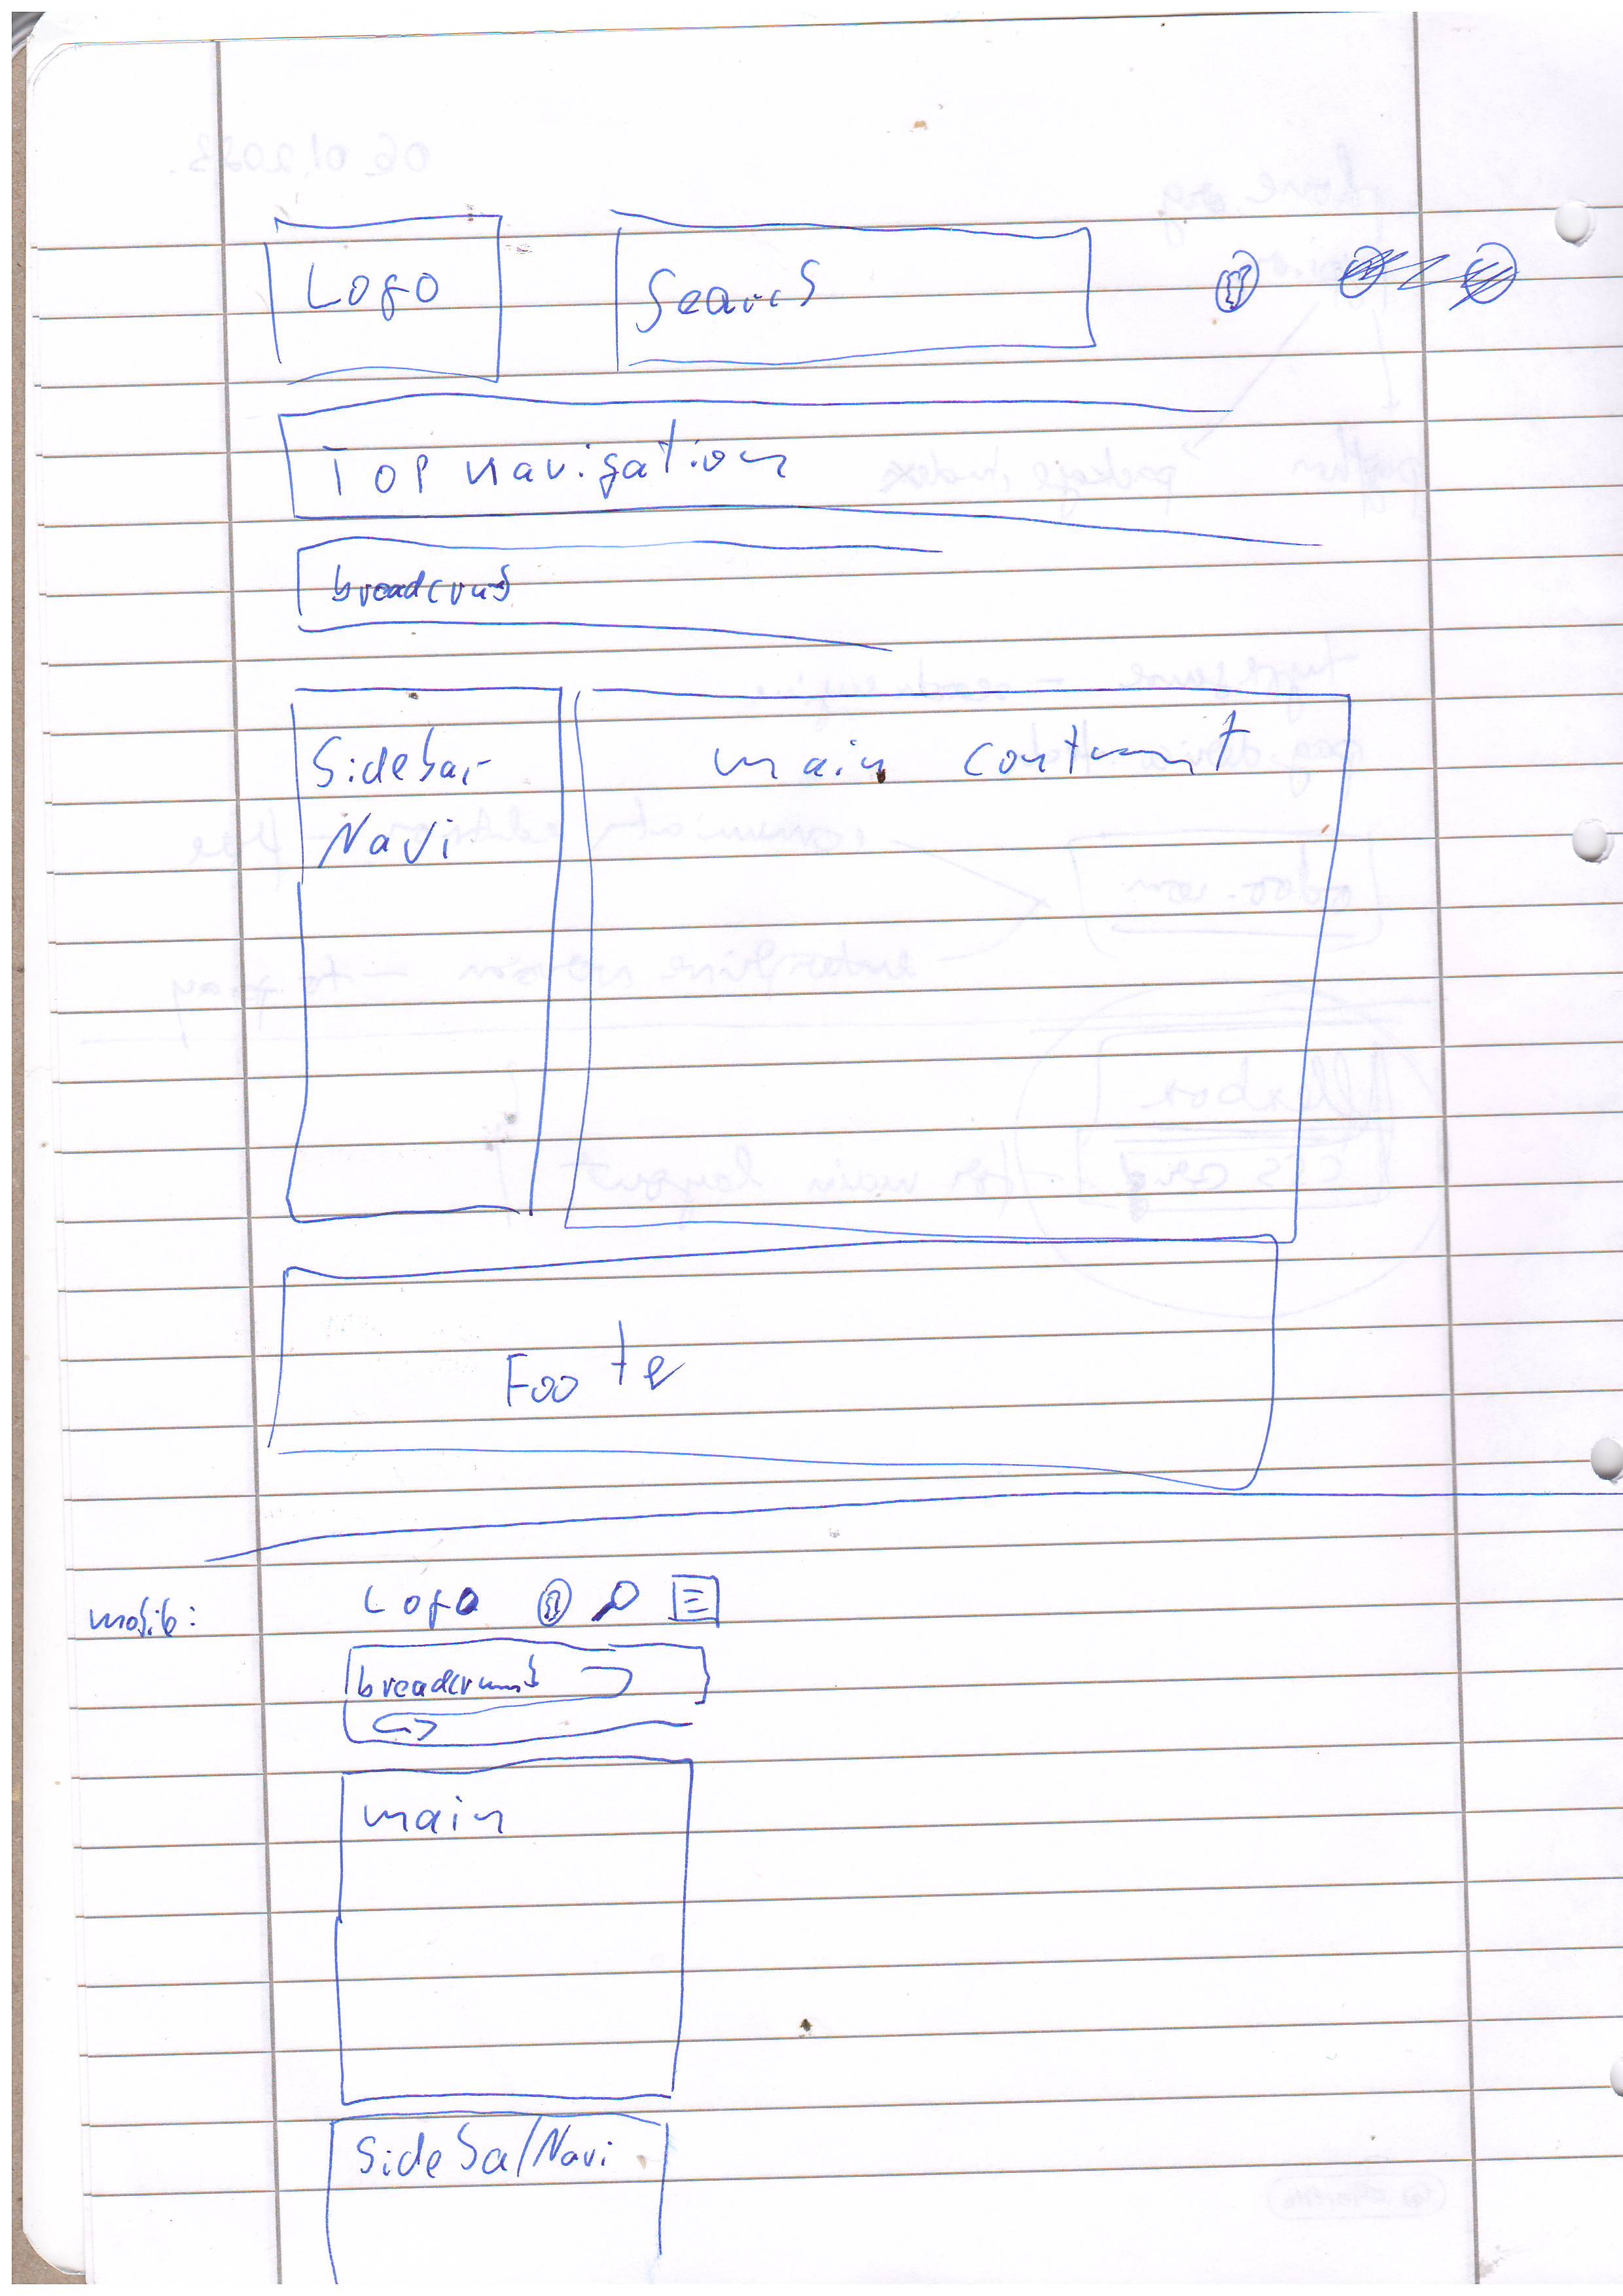 Logo
Search
Top navigation
breadcrumb
Sidebar
Navi
main content
Footer
mobile:
Logo
breadcrumb
main
Sidebar/Navi